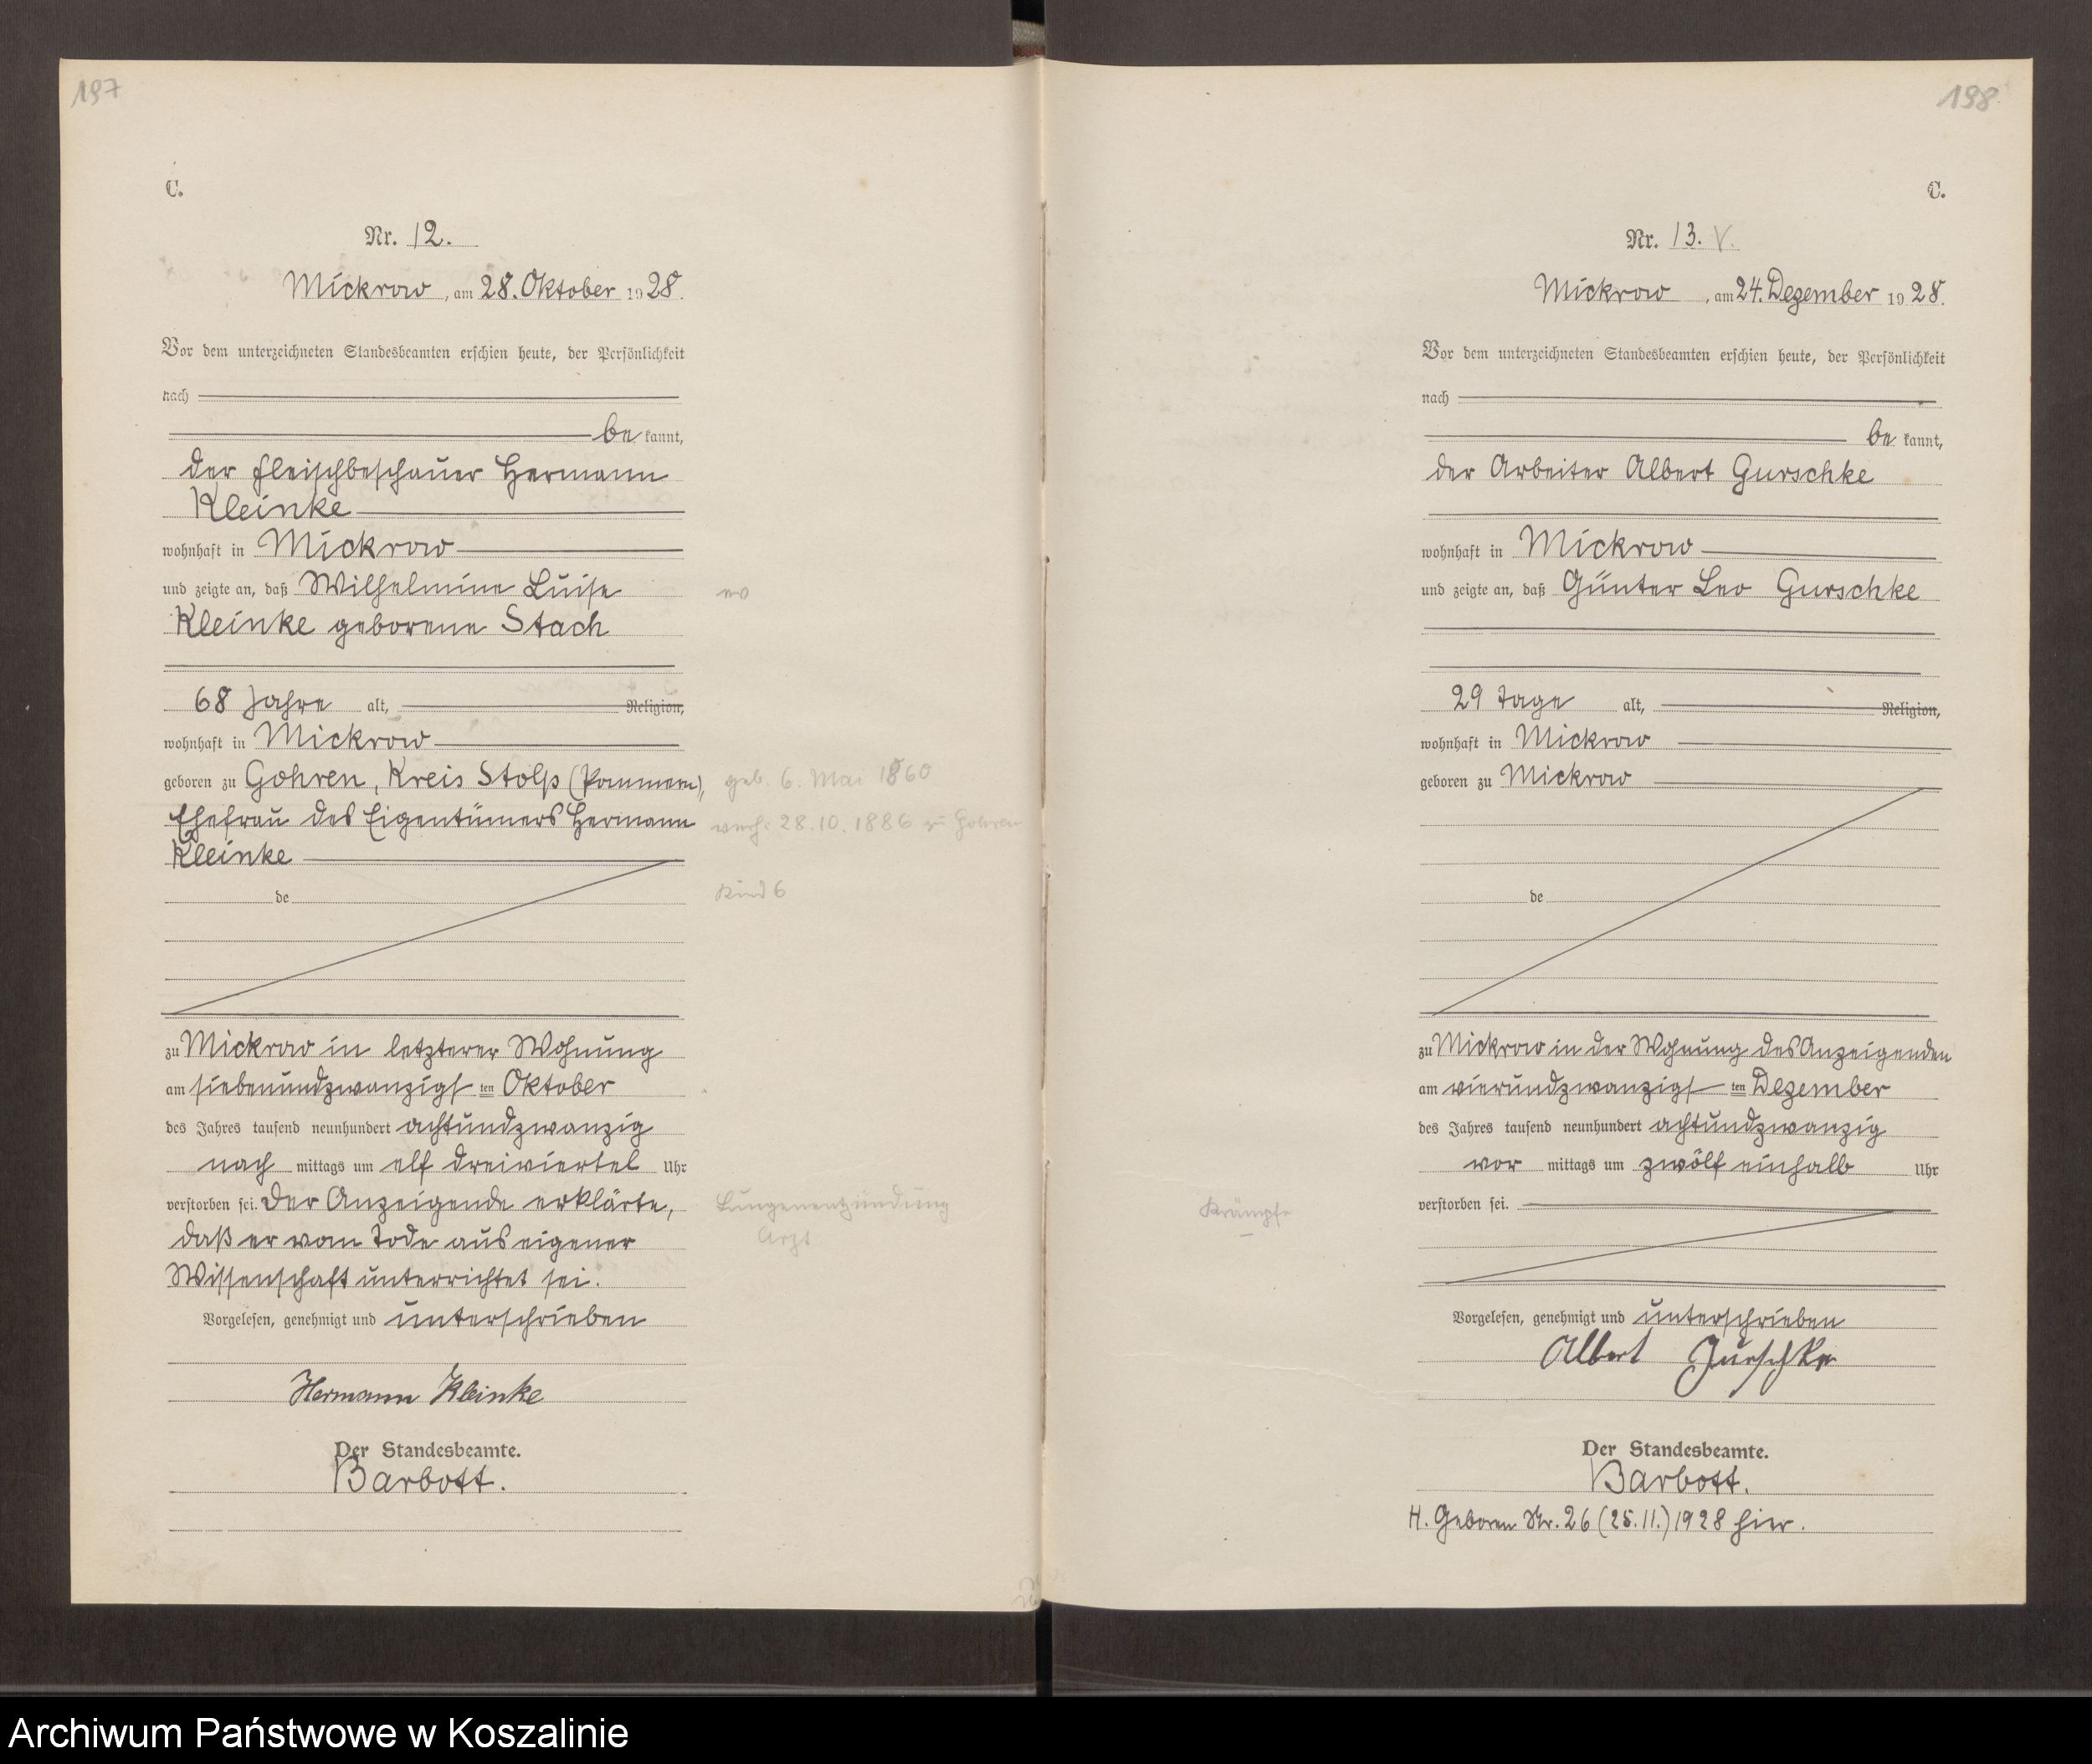 197
C.
Nr. 12.
Mickrow, am 28. Oktober 1928.
Vor dem unterzeichneten Standesbeamten erschien heute, der Persönlichkeit
nach
be kannt,
der Fleischbeschauer Hermann
Kleinke
wohnhaft in Mickrow
und zeigte an, daß Wilhelmine Luise
ev
Kleinke geborene Stach
68 Jahre alt, Religion,
wohnhaft in Mickrow
geboren zu Gohren, Kreis Stolp (Pommern),
geb. 6. Mai 1860
Ehefrau des Eigentümers Hermann
verh: 28.10.1886 zu Gohren
Kleinke
Kind 6
de
zu Mickrow in letzterer Wohnung
am siebenundzwanzigsten Oktober
des Jahres tausend neunhundert achtundzwanzig
nach mittags um elf dreiviertel Uhr
verstorben sei. Der Anzeigende erklärte,
Lungenentzündung
daß er vom Tode aus eigener
Arzt
Wissenschaft unterrichtet sei.
Vorgelesen, genehmigt und unterschrieben
Hermann Kleinke
Der Standesbeamte.
Barbott.
198
C.
Nr. 13. V.
Mickrow, am 24. Dezember 1928.
Vor dem unterzeichneten Standesbeamten erschien heute, der Persönlichkeit
nach
be kannt,
der Arbeiter Albert Gurschke
wohnhaft in Mickrow
und zeigte an, daß Günter Leo Gurschke
29 Tage alt, Religion,
wohnhaft in Mickrow
geboren zu Mickrow
de
zu Mickrow in der Wohnung des Anzeigenden
am vierundzwanzigsten Dezember
des Jahres tausend neunhundert achtundzwanzig
vor mittags um zwölf einhalb Uhr
verstorben sei.
Krämpfe
Vorgelesen, genehmigt und unterschrieben
Albert Gurschke
Der Standesbeamte.
Barbott.
H. Geboren Nr. 26 (25.11.) 1928 hier.
Archiwum Państwowe w Koszalinie